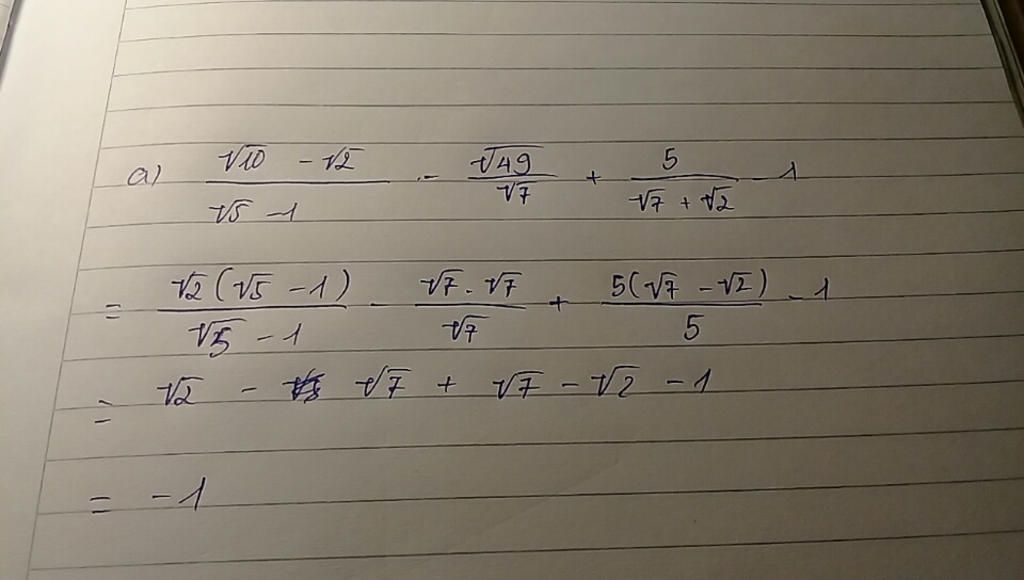 a) \frac{\sqrt{10} - \sqrt{2}}{\sqrt{5} - 1} - \frac{\sqrt{49}}{\sqrt{7}} + \frac{5}{\sqrt{7} + \sqrt{2}} - 1
= \frac{\sqrt{2}(\sqrt{5} - 1)}{\sqrt{5} - 1} - \frac{\sqrt{7} \cdot \sqrt{7}}{\sqrt{7}} + \frac{5(\sqrt{7} - \sqrt{2})}{5} - 1
= \sqrt{2} - \sqrt{7} + \sqrt{7} - \sqrt{2} - 1
= -1